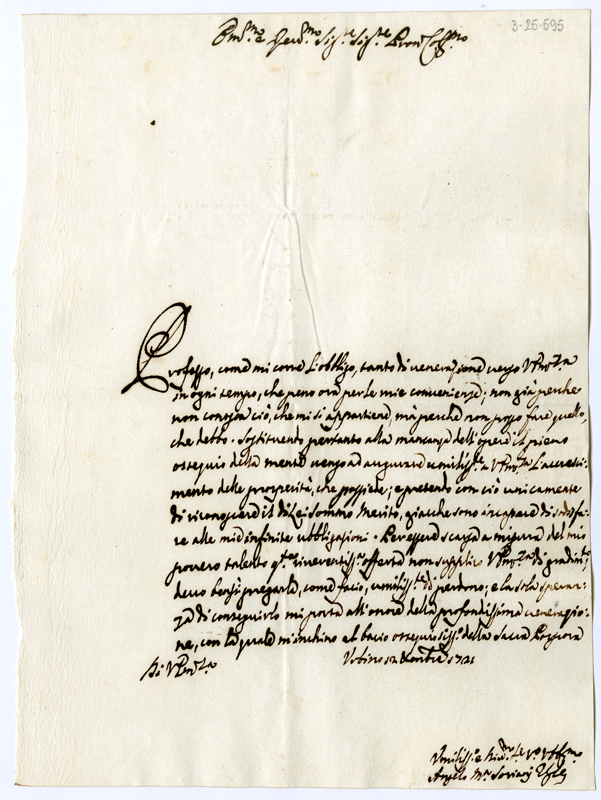 3-25-595
Em.mo e Rev.mo Sig.re Sig.re Pron Col.mo
Professo, come mi corre l'obbligo, tanto di venerazione verso V.Em.za
in ogni tempo, che peno ora per le mie convenienze; non già perche
non conosca ciò, che mi si appartiene, mà perche non posso fare quello,
che debbo. Sostituendo pertanto alla mancanza dell'opere il pieno
ossequio della mente vengo ad augurare umiliss.te a V.Em.za l'accresci:
mento delle prosperità, che possiede; e pretendo con ciò unicamente
di riconoscere il di Lei sommo Merito, giache sono incapace di sodisfa:
re alle mie infinite ubbligazioni. Per essere scarsa a misura del mio
povero talento q.ta riverentiss.a offerta non supplico V.Em.za di gradim.to
devo bensì pregarla, come facio, umiliss.te di perdono; e la sola speran:
za di conseguirlo mi porta all'onore della profondissima venerazio:
ne, con la quale m'inchino al bacio ossequiosiss.o della Sacra Porpora
Di V.Em.za
Urbino 12 Xmbre 1721
Umiliss.o e Obb.mo
Angelo M.a